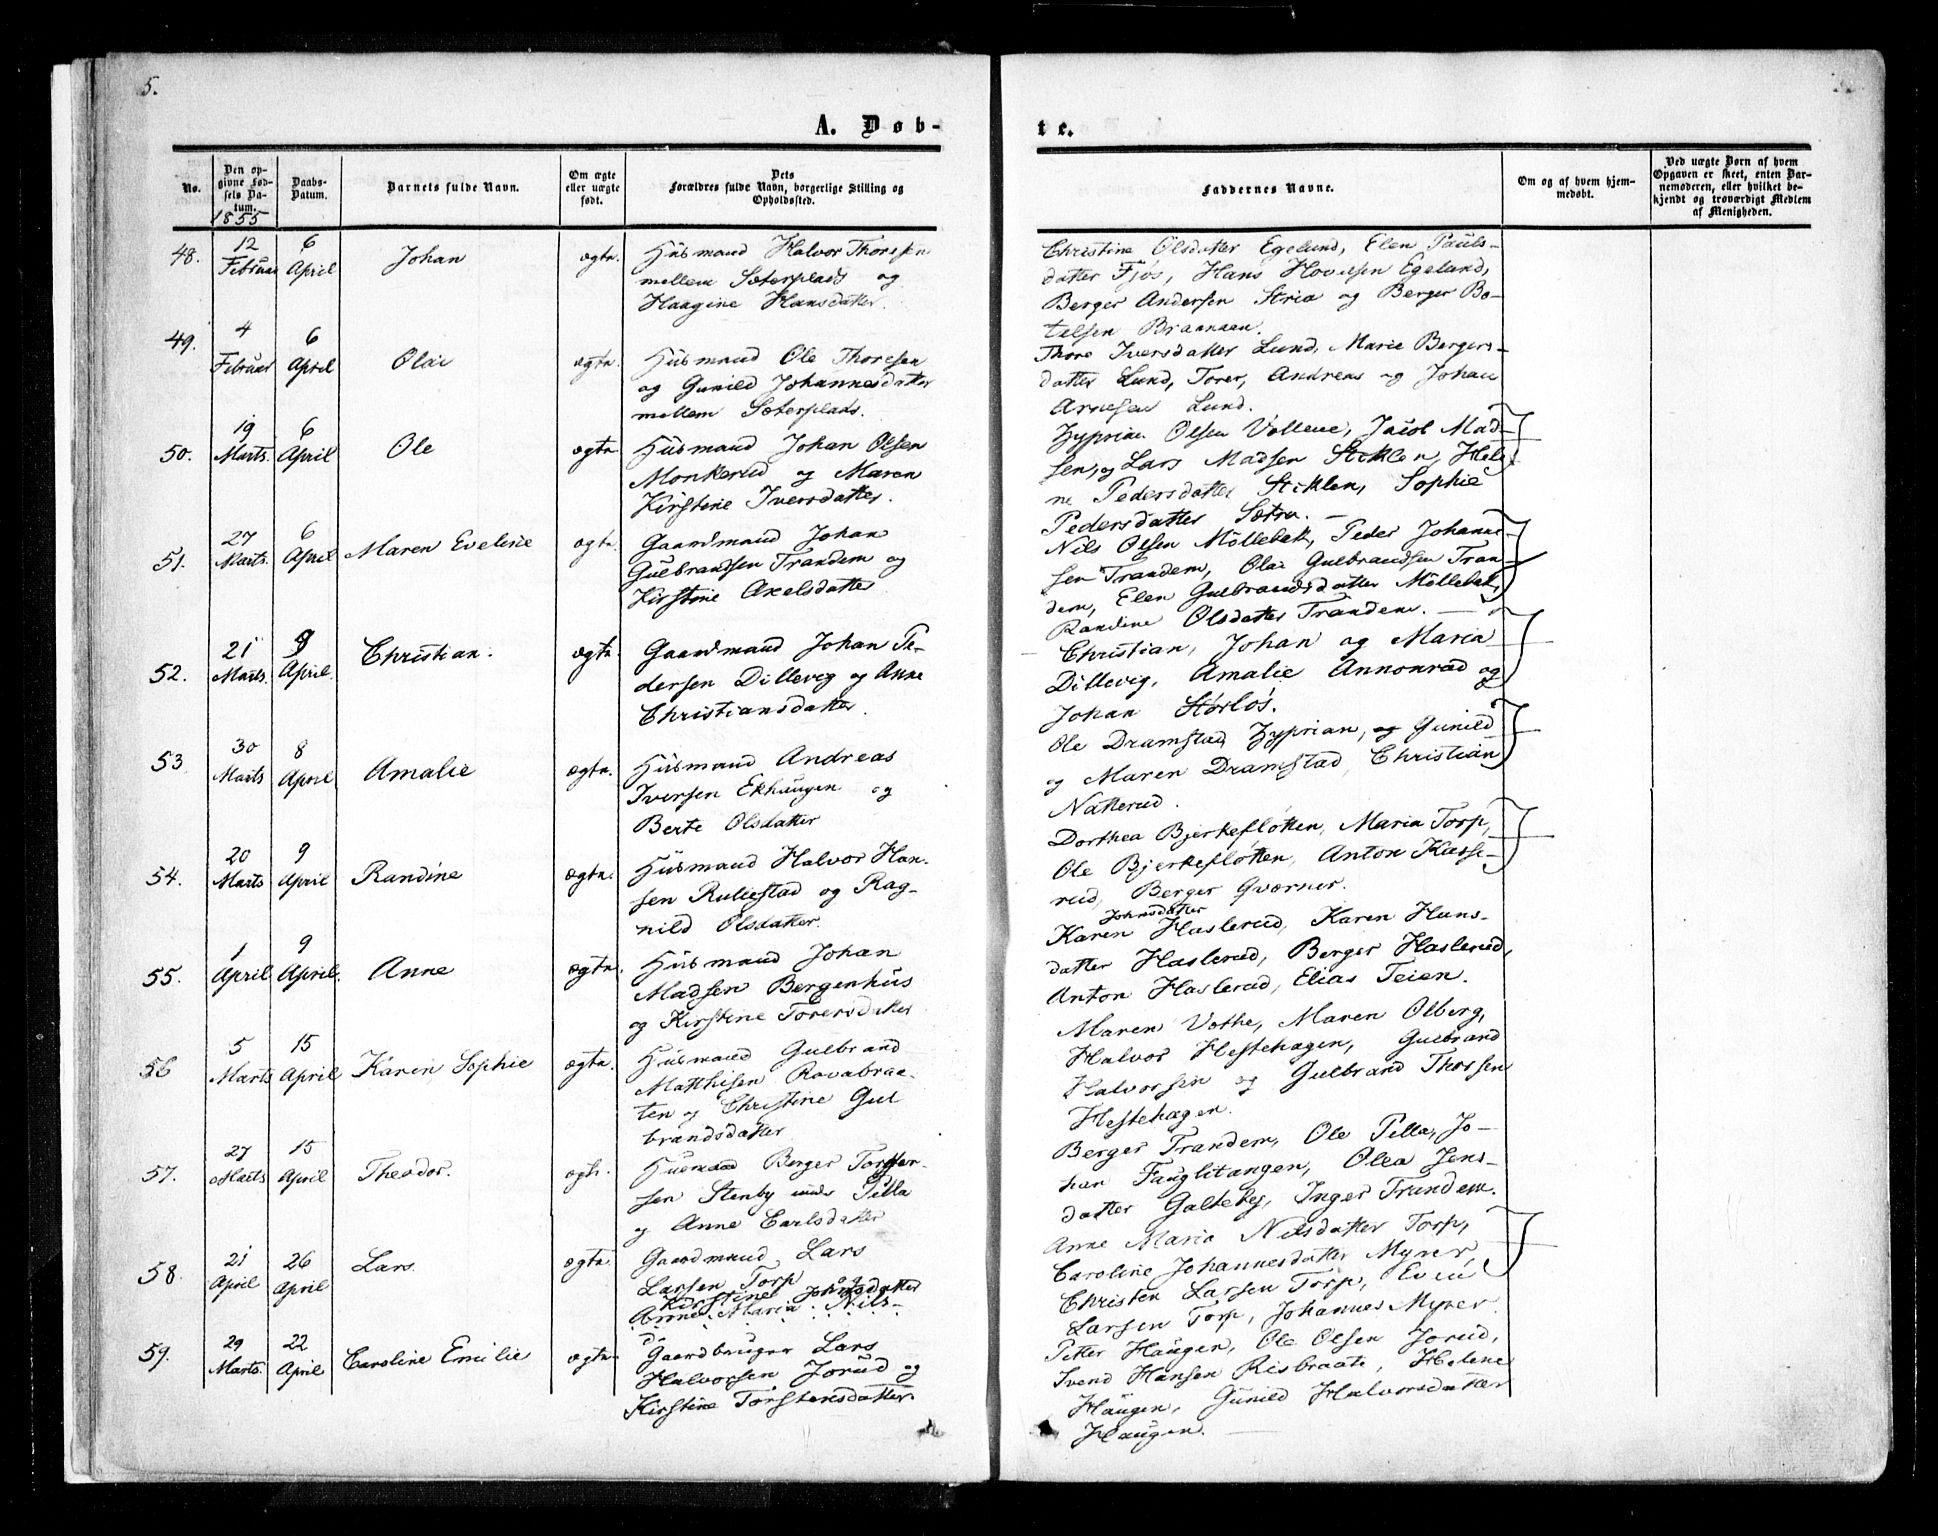 5.
A. Døb-
te.
No.
Den op-
givne Fød-
sels Da-
tum.
1855
Daabs-
Datum.
Barnets fulde Navn.
Om ægte
eller uægte
født.
Dets
Forældres fulde Navn, borgerlige Stilling og
Opholdssted.
Faddernes Navne.
Om og af hvem hjem-
medøbt.
Ved uægte Børn af hvem
Opgaven er skeet, enten Bar-
nemoderen, eller hvilket be-
kjendt og troværdigt Medlem
af Menigheden.
48.
12
Februar
6
April
Johan
ægte.
Husmand Halvor Thoresen
mellem Sæterplads og
Haagine Hansdatter.
Christine Olsdatter Egelund, Elen Pauls-
datter Fjøs, Hans Hovelsen Egelund,
Berger Andersen Stria og Berger Bo-
telsen Braanaan.
49.
4
Februar
6
April
Olai
ægte.
Husmand Ole Thoresen
og Gunild Johannesdatter
mellem Sæterplads.
Thore Iversdatter Lund, Marie Bergers-
datter Lund, Torer, Andreas og Johan
Arnesen Lund.
50.
19
Marts.
6
April
Ole
ægte
Husmand Johan Olsen
Monkerud og Maren
Kirstine Iversdatter.
Zyprian Olsen Vollene, Jacob Mad-
sen, og Lars Madsen Stiklen, Hele-
ne Pedersdatter Stiklen, Sophie
Pedersdatter Sætra. —
51.
27
Marts.
6
April
Maren Eveline
ægte
Gaardmand Johan
Gulbrandsen Trandem og
Kirstine Axelsdatter
Nils Olsen Møllebek, Peder Johanne-
sen Trandem, Olai Gulbrandsen Tran-
dem, Elen Gulbrandsdatter Møllebek,
Randine Olsdatter Trandem. —
52.
21
Marts.
9
April.
Christian.
ægte.
Gaardmand Johan Pe-
dersen Dillevig og Anne
Christiansdatter.
Christian, Johan og Maria
Dillevig, Amalie Annonrud og
Johan Størløs.
53
30
Marts
8
April
Amalie
ægte.
Husmand Andreas
Iversen Ekhaugen og
Berte Olsdatter
Ole Dramstad, Zyprian, og Gunild
og Maren Dramstad, Christian
Natterud.
54.
20
Marts
9
April
Randine
ægte.
Husmand Halvor Han-
sen Rullestad og Rag-
nild Olsdatter.
Dorthea Bjerkefløtten, Maria Torp,
Ole Bjerkefløtten, Anton Kasse-
rud, Berger Qværner.
55.
1
April
9
April.
Anne
ægte.
Husmand Johan
Madsen Bergenhus
og Kirstine Torersdatter
Johnsdatter
Karen Haslerud, Karen Hans-
datter Haslerud, Berger Haslerud,
Anton Haslerud, Elias Teien.
56
5
Marts
15
April
Karen Sophie
ægte.
Husmand Gulbrand
Matthisen Ravabraa-
ten og Christine Gul
brandsdatter
Maren Vothe, Maren Olberg,
Halvor Hestehagen, Gulbrand
Halvorsen og Gulbrand Thorsen
Hestehagen.
57.
27
Marts
15
April
Theodor.
ægte.
Husmand Berger Torger-
sen Stenby under Pilla
og Anne Carlsdatter
Berger Trandem, Ole Pilla, Jo-
han Fuglitangen, Olea Jens-
datter Galteby, Inger Trandem.
58.
21
April
26
April
Lars
ægte.
Gaardmand Lars
Larsen Torp og
Kirstine Johnsdatter
Anne Maria Nils-
Anne Maria Nilsdatter Torp,
Caroline Johannesdatter Myrer,
Christen Larsen Torp, Even
Larsen Torp, Johannes Myrer.
59.
29
Marts.
22
April
Caroline Emilie
ægte
Gaardbruger Lars
Halvorsen Jorud og
Kirstine Torstensdatter
Petter Haugen, Ole Olsen Jorud,
Svend Hansen Risbraate, Helene
Haugen, Gunild Halvorsdatter
Haugen. —